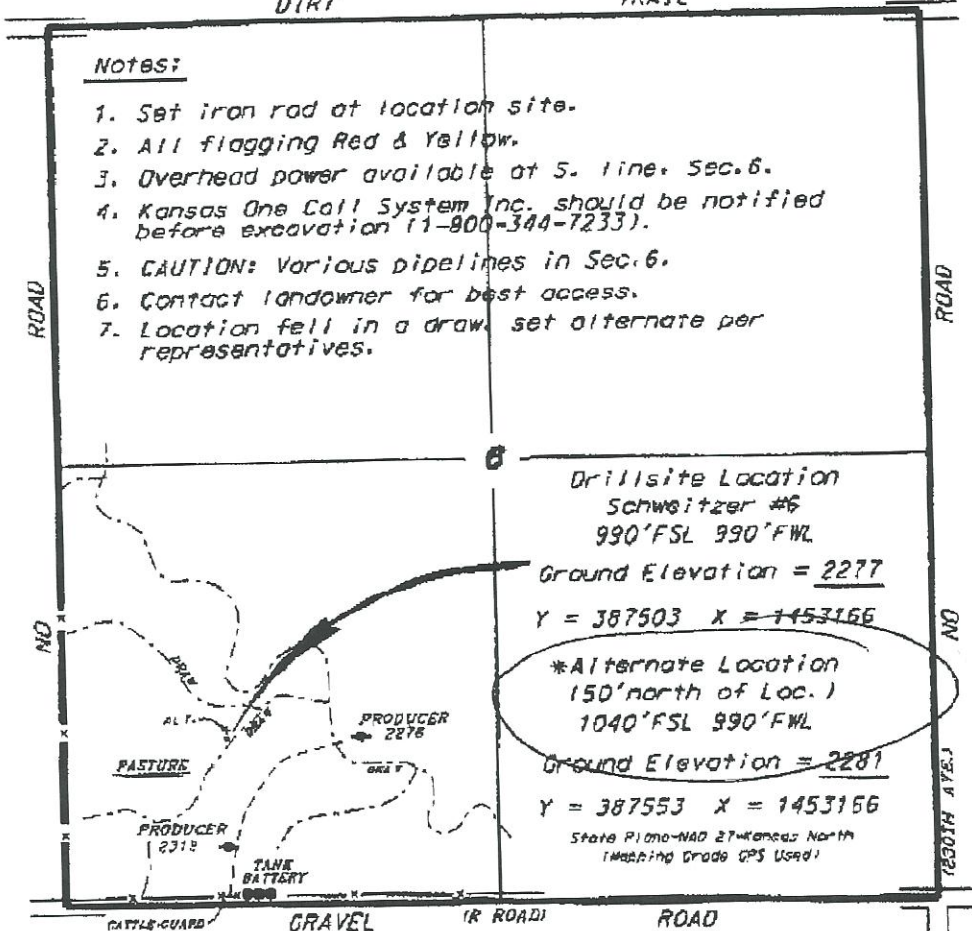 DIRT TRAIL
Notes:
1. Set iron rod at location site.
2. All flagging Red & Yellow.
3. Overhead power available at S. line. Sec.6.
4. Kansas One Call System Inc. should be notified
before excavation (1-800-344-7233).
5. CAUTION: Various pipelines in Sec.6.
6. Contact landowner for best access.
7. Location fell in a draw, set alternate per
representatives.
ROAD
ROAD
6
Drillsite Location
Schweitzer #6
990'FSL 990'FWL
Ground Elevation = 2277
Y = 387503 X = 1453166
*Alternate Location
(50'north of Loc.)
1040'FSL 990'FWL
Ground Elevation = 2281
Y = 387553 X = 1453166
State Plane-NAD 27-Kansas North
(Mapping Grade GPS Used)
NO
NO
DRAW
ALT.
DRAW
PRODUCER
2276
PASTURE
DRAW
PRODUCER
TANK
BATTERY
(230TH AVE.)
CATTLE-GUARD
GRAVEL (R ROAD) ROAD